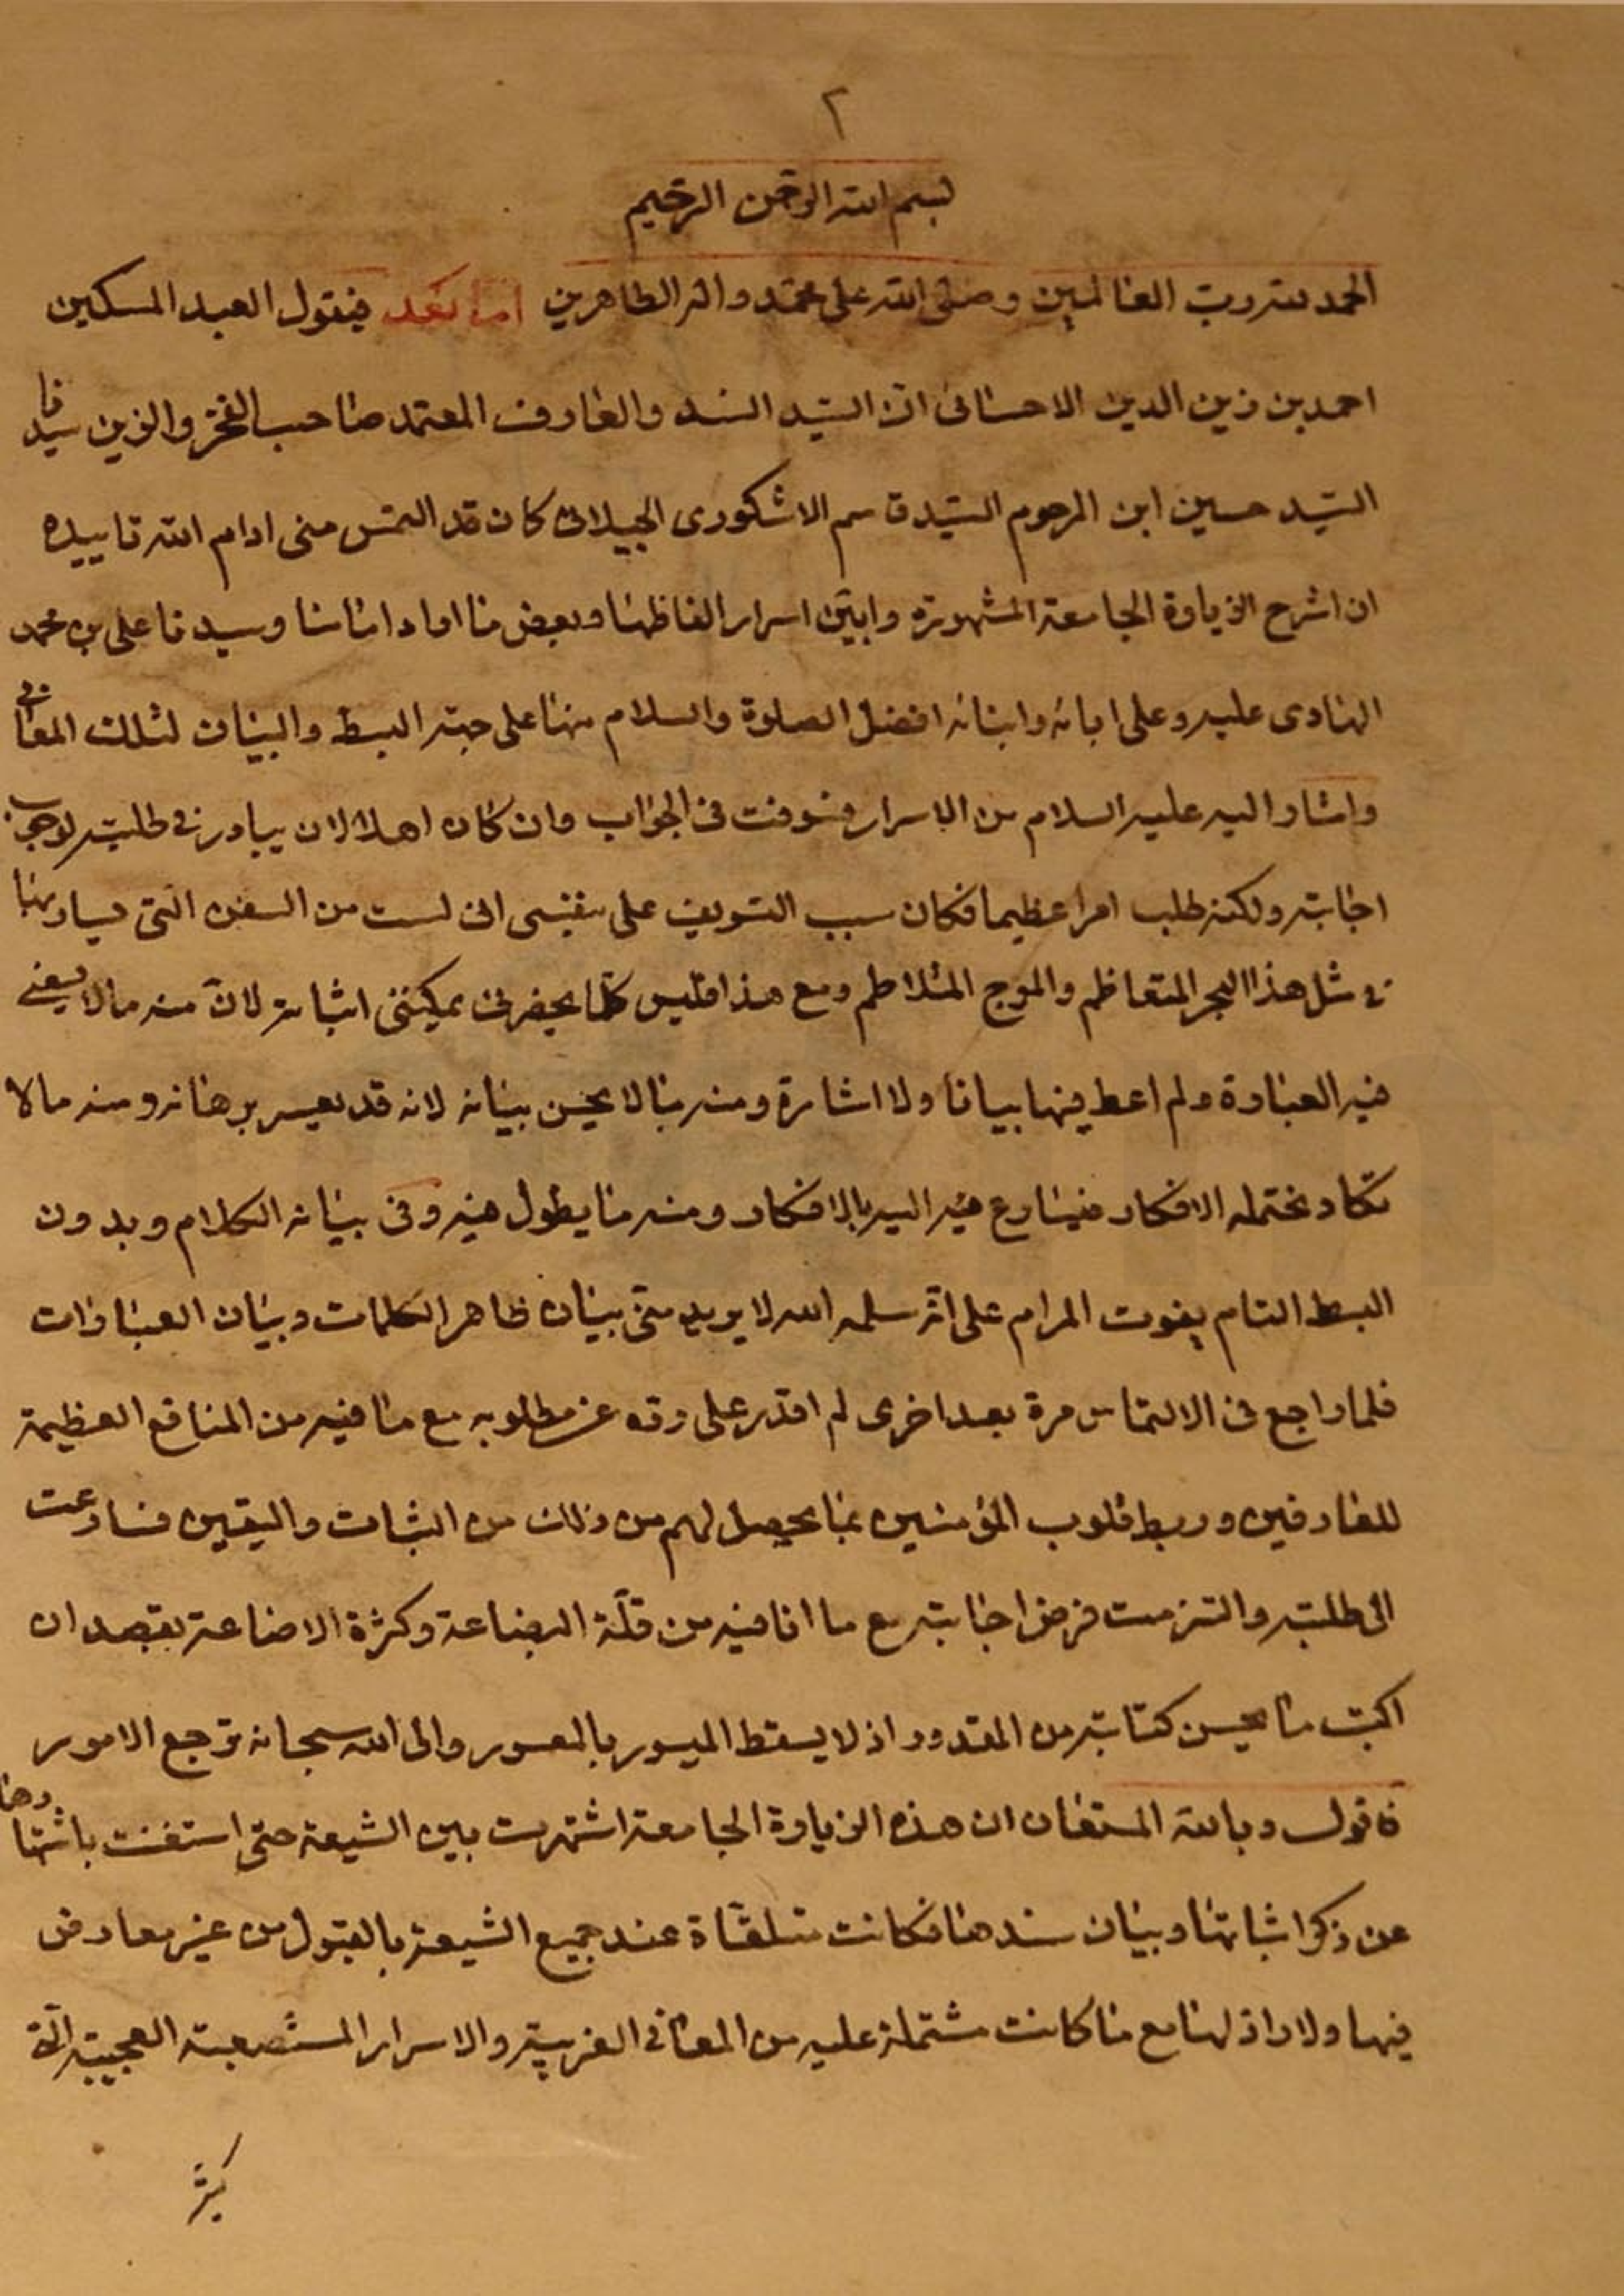 ٢
بسم الله الرحمن الرحيم
الحمد لله رب العالمين وصلى الله على محمد واله الطاهرين اما بعد فيقول العبد المسكين
احمد بن زين الدين الاحسائى ان السيد السند والعارف المعتمد صاحب الفخر والزين سيدنا
السيد حسين ابن المرحوم السيد قاسم الاشكورى الجيلانى كان قد التمس منى ادام الله تاييده
ان اشرح الزيارة الجامعة المشهورة وابين اسرار الفاظها وبعض ما اراد امامنا وسيدنا على بن محمد
الهادى عليه وعلى ابائه وابنائه افضل الصلوة والسلام منها على جهة البسط والبيان لتلك المعانى
واشار اليه عليه السلام من الاسرار فسوفت فى الجواب وان كان اهلا لان يبادر فى طلبته لوجوب
اجابته ولكنه طلب امرا عظيما فكان سبب التسويف على نفسى انى لست من السفن التى يسار بها
فى مثل هذا البحر المتعاظم والموج المتلاطم ومع هذا فليس كلما يحضرنى يمكننى اثباته لان منه ما لا يسعنى
فيه العبارة ولم اعط فيها بيانا ولا اشارة ومنه ما لا يحسن بيانه لانه قد يعسر برهانه ومنه ما لا
تكاد تحتمله الافكار فيسارع فيه اليه بالانكار ومنه ما يطول فيه وفى بيانه الكلام وبدون
البسط التام يفوت المرام على انه سلمه الله لا يريد منى بيان ظاهر الكلمات وبيان العبارات
فلما راجع فى الالتماس مرة بعد اخرى لم اقدر على رده عن مطلوبه مع ما فيه من المنافع العظيمة
للعارفين وربط قلوب المؤمنين بما يحصل لهم من ذلك من الثبات واليقين فسارعت
الى طلبته والتزمت فرض اجابته مع ما انا فيه من قلة البضاعة وكثرة الاضاعة بقصد ان
اكتب ما يحسن كتابته من المقدور اذ لا يسقط الميسور بالمعسور والى الله سبحانه ترجع الامور
فاقول وبالله المستعان ان هذه الزيارة الجامعة اشتهرت بين الشيعة حتى استغنت باشتهارها
عن ذكر اثباتها وبيان سندها فكانت متلقاة عند جميع الشيعة بالقبول من غير معارض
فيها ولا راد لها مع ما كانت مشتملة عليه من المعانى الغريبة والاسرار المستصعبة العجيبة التى